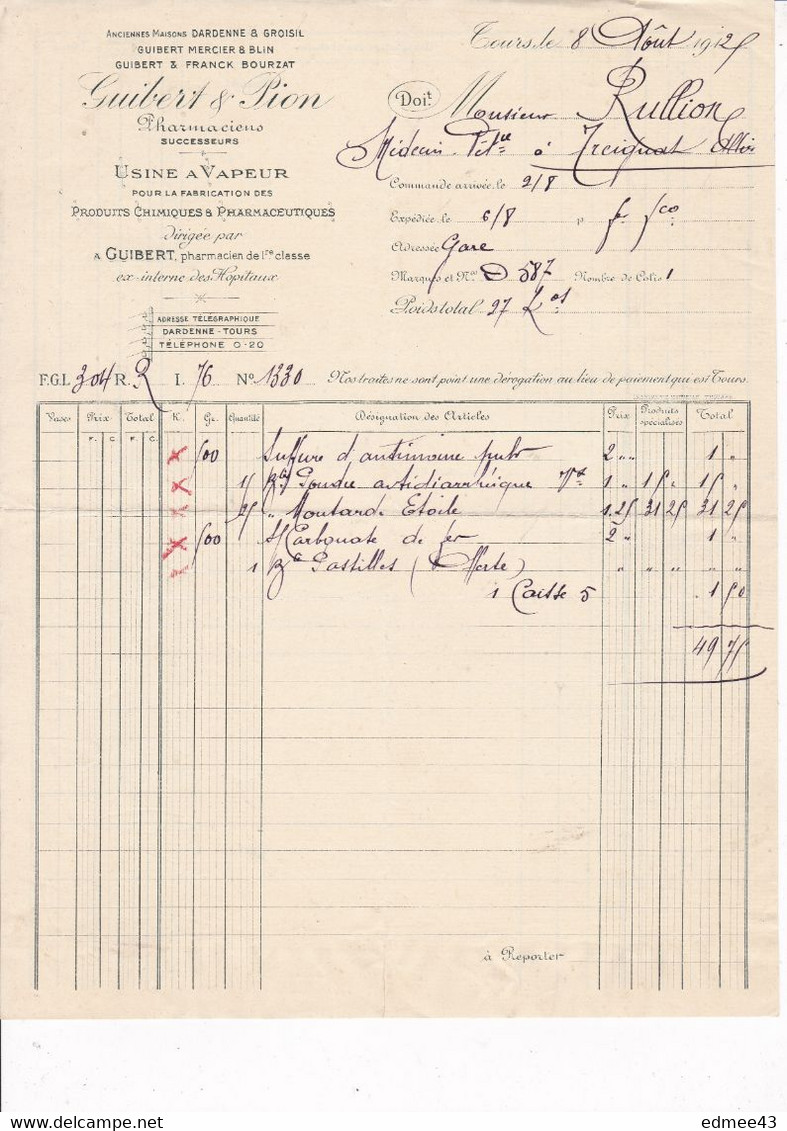 Anciennes Maisons DARDENNE & GROISIL
GUIBERT MERCIER & BLIN
GUIBERT & FRANCK BOURZAT
Guibert & Pion
Pharmaciens
SUCCESSEURS
USINE A VAPEUR
POUR LA FABRICATION DES
PRODUITS CHIMIQUES & PHARMACEUTIQUES
dirigée par
A GUIBERT, pharmacien de 1re classe
ex-interne des Hôpitaux
ADRESSE TÉLÉGRAPHIQUE
DARDENNE - TOURS
TÉLÉPHONE 0-20
Tours, le 8 Août 1912
Doit. Monsieur Rullion
Médecin Vétre à Treignat Allier
Commande arrivée le 2/8
Expédiée le 6/8 p fco
Adressée Gare
Marques et Nos D 587 Nombre de Colis 1
Poids total 27 Kos
F.G.L 304 R. 2 I. 76 No 1330 Nos traites ne sont point une dérogation au lieu de paiement qui est Tours.
Vases Prix Total K. Gr. Quantité Désignation des Articles Prix Produits spécialisés Total
F. C. F. C.
500 Sulfure d'antimoine pulv 2 " 1 "
15 Btes Poudre antidiarrhéique Vre 1 " 15 " 15 "
25 " Moutarde Etoile 1.25 31 25 31 25
500 S/Carbonate de fer 2 " 1 "
1 Bte Pastilles (Offerte) " " " " " "
1 Caisse 5 . 1 50
49 75
à Reporter
edmee43